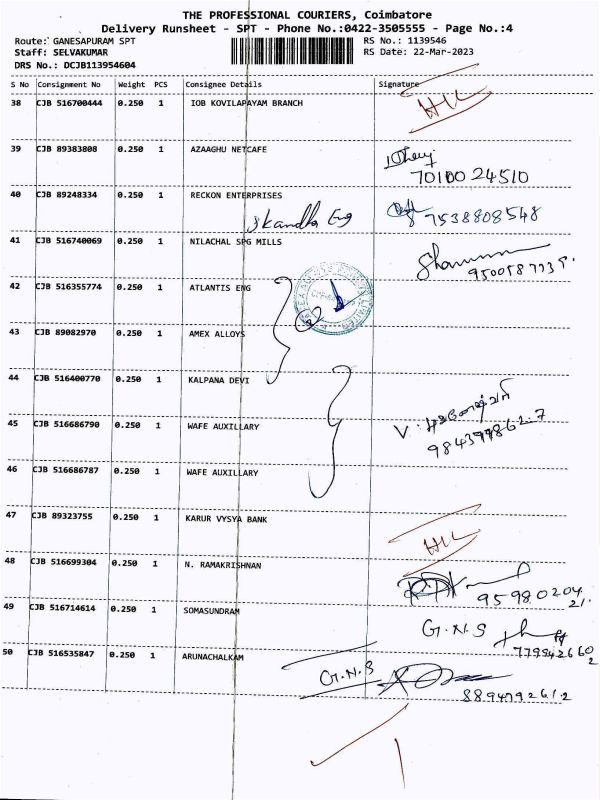 THE PROFESSIONAL COURIERS, Coimbatore
Delivery Runsheet - SPT - Phone No.:0422-3505555 - Page No.:4
Route: GANESAPURAM SPT
RS No.: 1139546
Staff: SELVAKUMAR
RS Date: 22-Mar-2023
DRS No.: DCJB113954604
S No Consignment No Weight PCS Consignee Details Signature
38 CJB 516700444 0.250 1 IOB KOVILAPAYAM BRANCH
39 CJB 89383808 0.250 1 AZAAGHU NETCAFE
70100 24510
40 CJB 89248334 0.250 1 RECKON ENTERPRISES
Skandha Eng
7538808548
41 CJB 516740069 0.250 1 NILACHAL SPG MILLS
42 CJB 516355774 0.250 1 ATLANTIS ENG
43 CJB 89082970 0.250 1 AMEX ALLOYS
44 CJB 516400770 0.250 1 KALPANA DEVI
45 CJB 516686790 0.250 1 WAFE AUXILLARY
46 CJB 516686787 0.250 1 WAFE AUXILLARY
47 CJB 89323755 0.250 1 KARUR VYSYA BANK
48 CJB 516699304 0.250 1 N. RAMAKRISHNAN
95980204
21.
49 CJB 516714614 0.250 1 SOMASUNDRAM
G.N.S
779942660
2
50 CJB 516535847 0.250 1 ARUNACHALKAM
G.N.S
8894792612